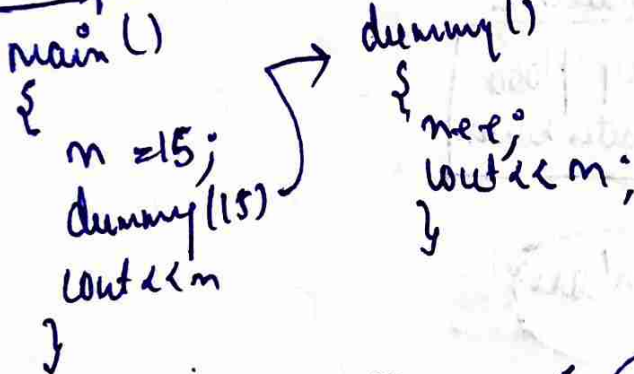 main()
{
n = 15;
dummy(15)
cout << n
}
dummy()
{
n++;
cout << n;
}